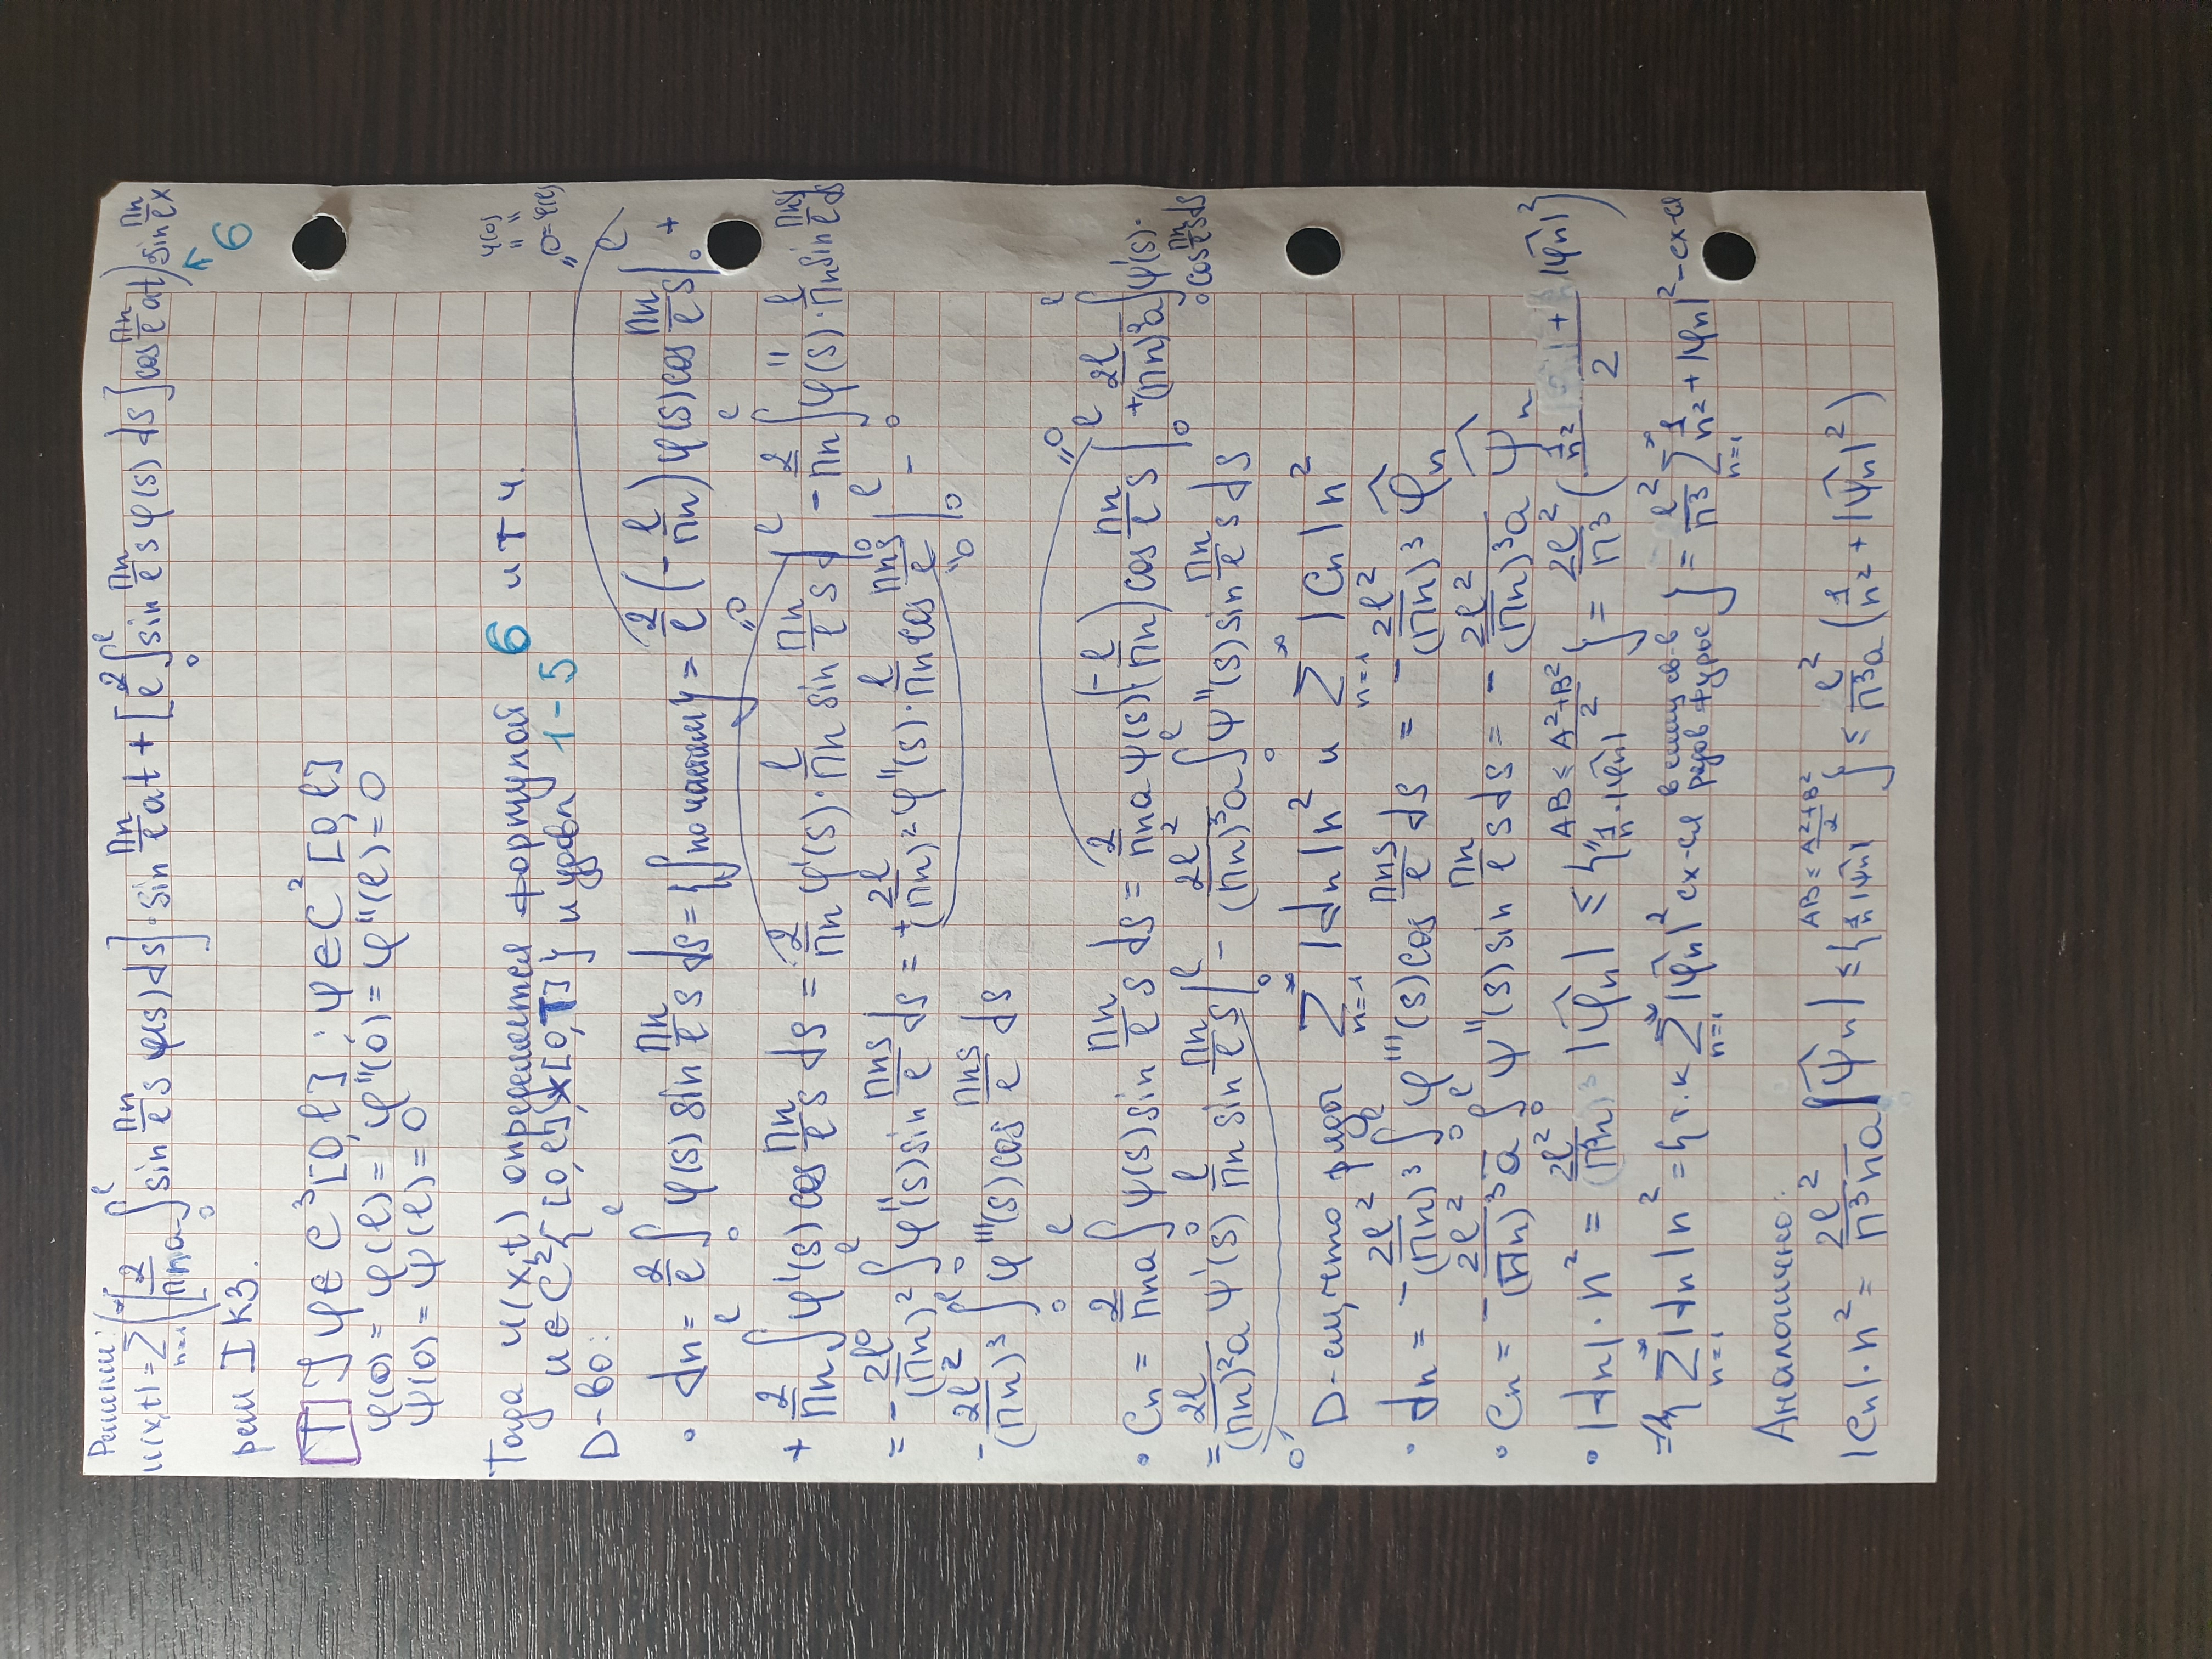 Решение:
u(x,t) = ∑_{n=1}^{∞} ([2/(πna) ∫_0^l sin (πn/l) s ψ(s) ds] · sin (πn/l) at + [2/l ∫_0^l sin (πn/l) s φ(s) ds] cos (πn/l) at) sin (πn/l) x
↖ 6
реш I КЗ.
[T] ] φ ∈ C³ [0, l] ; ψ ∈ C² [0, l]
φ(0) = φ(l) = φ''(0) = φ''(l) = 0
ψ(0) = ψ(l) = 0
Тогда u(x,t) определяется формулой 6 и т ч.
u ∈ C² { [0, l] × [0, T] } и удовл 1-5
D-во:
φ(0) = 0 = φ(l)
• dn = 2/l ∫_0^l φ(s) sin (πn/l) s ds = {по частям} = 2/l (- l/(πn)) φ(s) cos (πn/l) s |_0^l +
+ 2/(πn) ∫_0^l φ'(s) cos (πn/l) s ds = 2/(πn) φ'(s) · l/(πn) sin (πn/l) s |_0^l - 2/(πn) ∫_0^l φ''(s) · l/(πn) sin (πns/l) ds
= - 2l/(πn)² ∫_0^l φ''(s) sin (πns/l) ds = + 2l/(πn)² φ''(s) · l/(πn) cos (πns/l) |_0^l -
- 2l²/(πn)³ ∫_0^l φ'''(s) cos (πns/l) ds
• Cn = 2/(πna) ∫_0^l ψ(s) sin (πn/l) s ds = 2/(πna) ψ(s) (- l/(πn)) cos (πn/l) s |_0^l + 2l/(πn)²a ∫_0^l ψ'(s) · cos (πn/l) s ds
= 2l/(πn)²a ψ'(s) l/(πn) sin (πn/l) s |_0^l - 2l²/(πn)³a ∫_0^l ψ''(s) sin (πn/l) s ds
D-ем, что ряды ∑_{n=1}^{∞} |dn| n² и ∑_{n=1}^{∞} |Cn| n² сх
• dn = - 2l²/(πn)³ ∫_0^l φ'''(s) cos (πns/l) ds = - 2l²/(πn)³ φ̂n
• Cn = - 2l²/(πn)³a ∫_0^l ψ''(s) sin (πn/l) s ds = - 2l²/(πn)³a ψ̂n
• |dn| · n² = 2l²/(π³n) |φ̂n| ≤ { AB ≤ (A²+B²)/2 " 1/n · |φ̂n| } = 2l²/π³ ( (1/n² + |φ̂n|²)/2 )
⇒ { ∑_{n=1}^{∞} |dn| n² = { т.к ∑_{n=1}^{∞} |φ̂n|² сх-ся в силу св-в рядов Фурье } = l²/π³ ∑_{n=1}^{∞} 1/n² + |φn|² - сх-ся
Аналогично:
|Cn| · n² = 2l²/(π³na) |ψ̂n| ≤ { AB ≤ (A²+B²)/2 1/n |ψ̂n| } ≤ l²/(π³a) (1/n² + |ψ̂n|²)